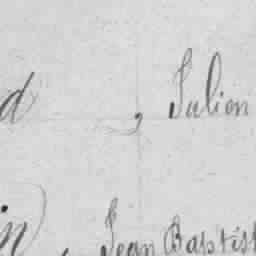 d , Julien
in , Jean Baptist